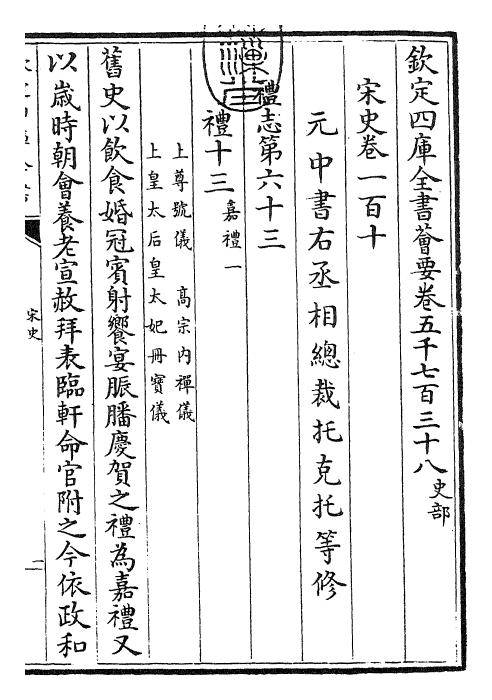 欽定四庫全書薈要卷五千七百三十八史部
宋史卷一百十
元中書右丞相總裁托克托等修
禮志第六十三
禮十三嘉禮一
上尊號儀 高宗內禪儀
上皇太后皇太妃冊寶儀
舊史以飲食婚冠賓射饗宴脤膰慶賀之禮為嘉禮又
以歲時朝會養老宣赦拜表臨軒命官附之今依政和
宋史